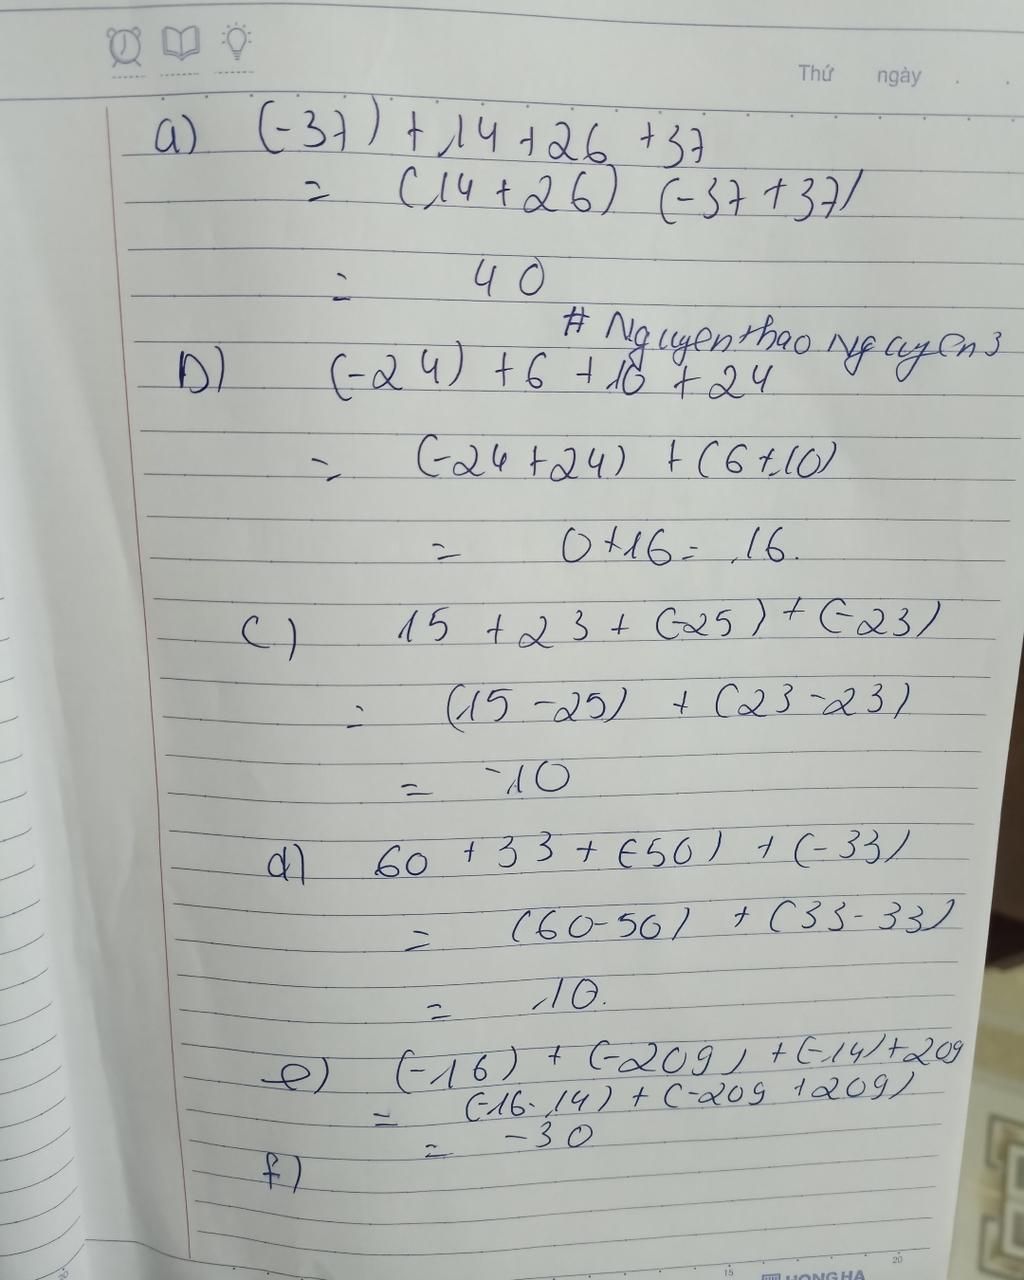 Thứ ngày . .
a) (-37) + 14 + 26 + 37
= (14 + 26) (-37 + 37)
= 40
# Nguyenthao Nguyen3
b) (-24) + 6 + 10 + 24
= (-24 + 24) + (6 + 10)
= 0 + 16 = 16.
c) 15 + 23 + (-25) + (-23)
= (15 - 25) + (23 - 23)
= -10
d) 60 + 33 + (-50) + (-33)
= (60 - 50) + (33 - 33)
= 10.
e) (-16) + (-209) + (-14) + 209
= (-16 - 14) + (-209 + 209)
= -30
f)
20 15 HONG HA 20